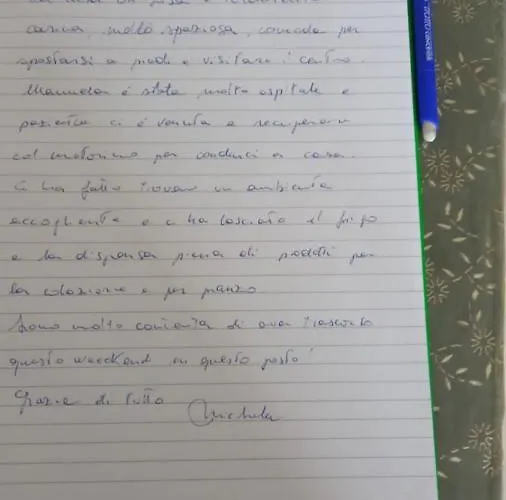 carina, molto spaziosa, comoda per
spostarsi a piedi e visitare i centro.
Manuela è stata molto ospitale e
paziente ci è venuta a recuperare
col motorino per condurci a casa.
Ci ha fatto trovare un ambiente
accogliente e ci ha lasciato il frigo
e la dispensa piena di prodotti per
la colazione e per pranzo
Sono molto contenta di aver trascorso
questo weekend in questo posto!
Grazie di tutto
Michela